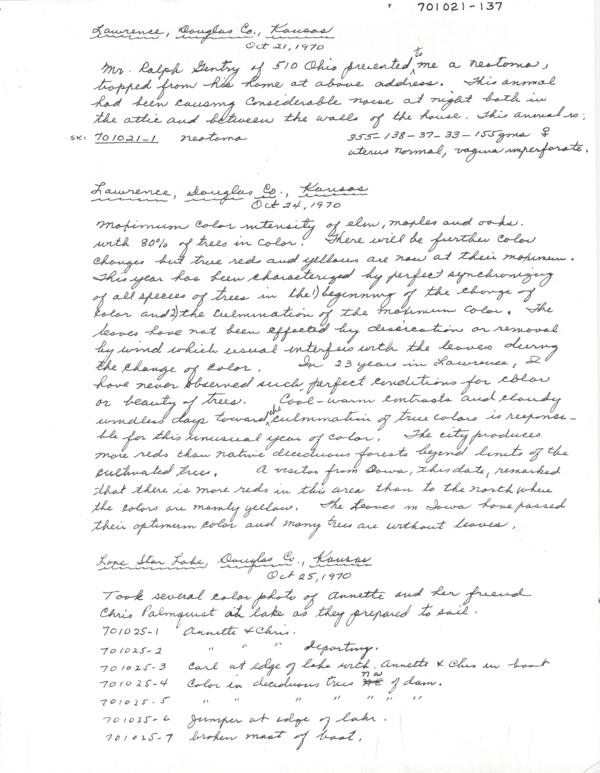 701021-137
Lawrence, Douglas Co., Kansas
Oct 21, 1970
Mr. Ralph Gentry of 510 Ohio presented to me a neotoma,
trapped from his home at above address. This animal
had been causing considerable noise at night both in
the attic and between the walls of the house. This animal is:
SK: 701021-1 neotoma 355-138-37-33-155gms ♀
uterus normal, vagina imperforate.
Lawrence, Douglas Co., Kansas
Oct 24, 1970
Maximum color intensity of elm, maples and oaks.
with 80% of trees in color. There will be further color
changes but true reds and yellows are now at their maximum.
This year has been characterized by perfect synchronizing
of all species of trees in the 1) beginning of the change of
color and 2) the culmination of the maximum color. The
leaves have not been effected by dessication or removal
by wind which usual interfers with the leaves during
the change of color. In 23 years in Lawrence, I
have never observed such perfect conditions for color
or beauty of trees. Cool-warm contrasts and cloudy
windless days toward the culmination of true colors is response-
ble for this unusual year of color. The city produces
more reds than native deciduous forests beyond limits of the
cultivated trees. A visitor from Iowa, this date, remarked
that there is more reds in this area than to the north where
the colors are mainly yellow. The leaves in Iowa have passed
their optimum color and many trees are without leaves.
Lone Star Lake, Douglas Co., Kansas
Oct 25, 1970
Took several color photo of Annette and her friend
Chris Palmquist at lake as they prepared to sail.
701025-1 Annette & Chris.
701025-2 " " " departing.
701025-3 Carl at edge of lake with Annette & Chris in boat
701025-4 Color in deciduous trees NW of dam.
701025-5 " " " " " " "
701025-6 Jumper at edge of lake.
701025-7 broken mast of boat.